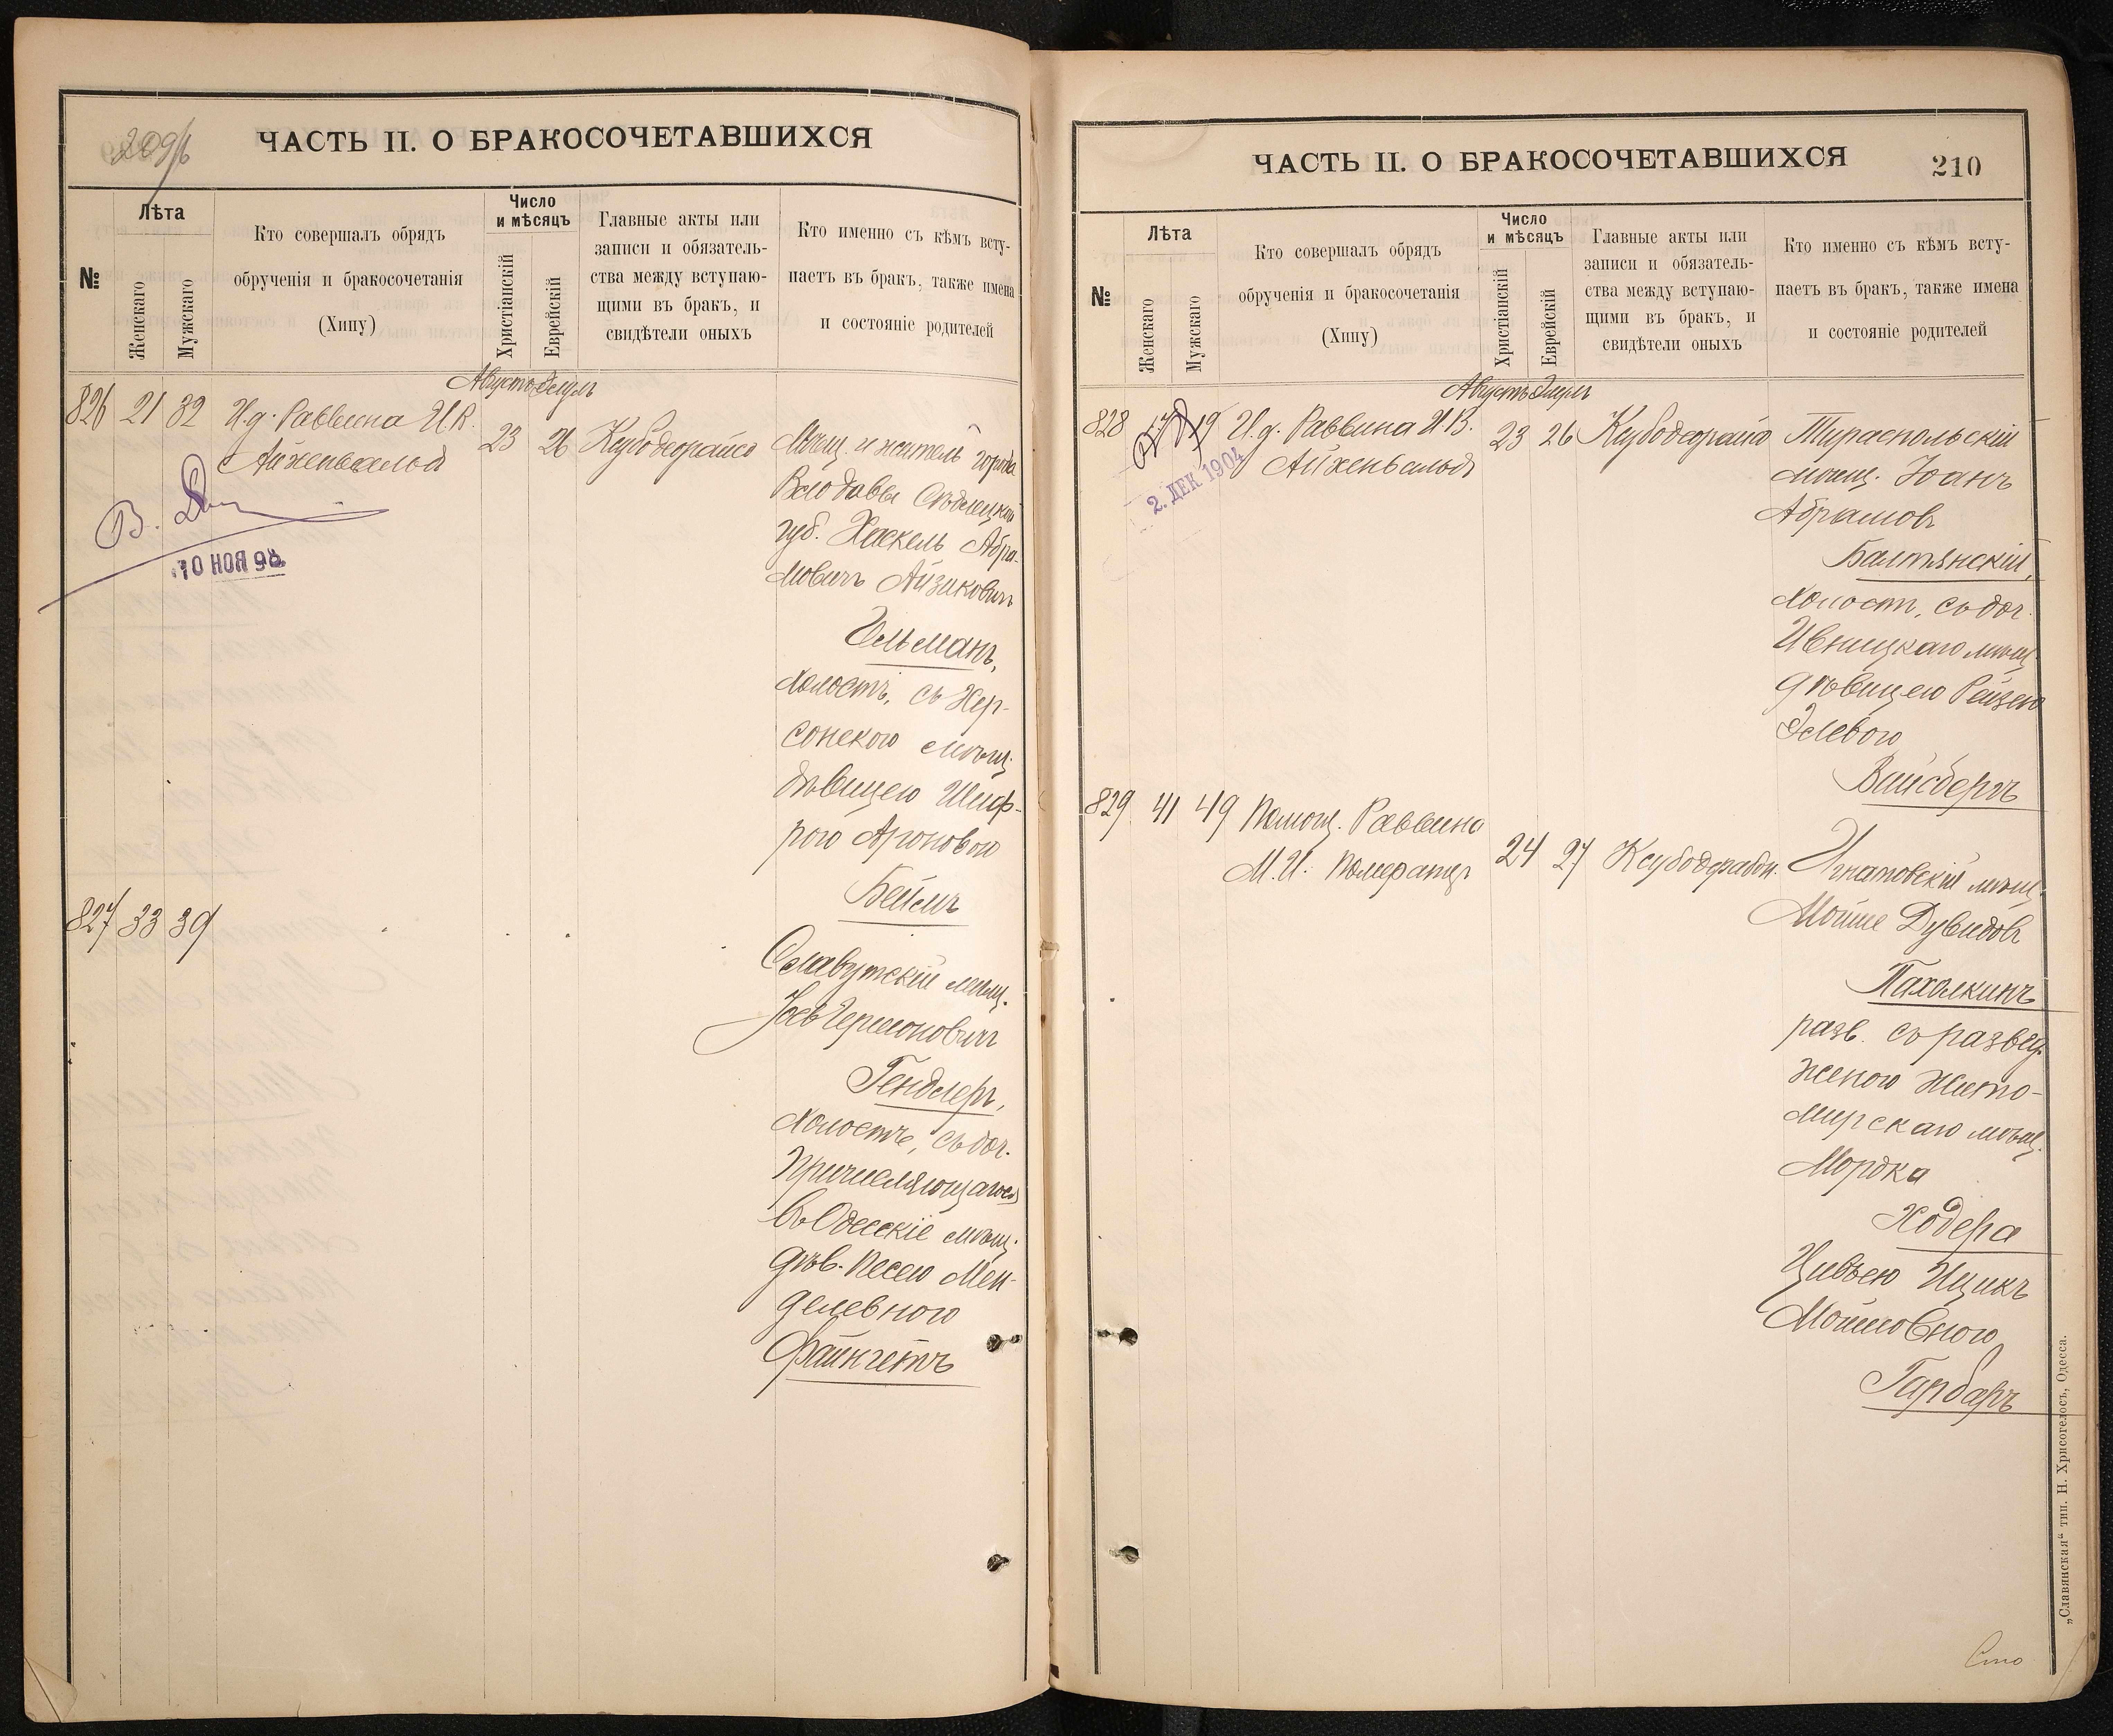 209/б
ЧАСТЬ II. О БРАКОСОЧЕТАВШИХСЯ
№
Лѣта
Женскаго
Мужскаго
Кто совершалъ обрядъ
обрученія и бракосочетанія
(Хипу)
Число
и мѣсяцъ
Христіанскій
Еврейскій
Главные акты или
записи и обязатель-
ства между вступаю-
щими въ бракъ, и
свидѣтели оныхъ
Кто именно съ кѣмъ всту-
паетъ въ бракъ, также имена
и состояніе родителей
Августъ Элулъ
826 21 32 И.д. Раввина
Айхенвальд
23 26
Мѣщ. и житель города
Влодавы Сѣдлецкой
губ. Хаскель Абра-
мовичъ Айзиковичъ
Гельманъ,
холостъ, съ Хер-
сонскою мѣщ.
дѣвицею Шиф-
рою Ароновою
Беймъ
827 33 39
Славутскій мѣщ.
Іось Гершоновичъ
Гендлеръ,
холостъ, съ доч.
причисляющагося
въ Одесскіе мѣщ.
дѣв. Песею Мен-
делевною
Файнгетъ
В.
10 НОЯ 98
ЧАСТЬ II. О БРАКОСОЧЕТАВШИХСЯ
210
№
Лѣта
Женскаго
Мужскаго
Кто совершалъ обрядъ
обрученія и бракосочетанія
(Хипу)
Число
и мѣсяцъ
Христіанскій
Еврейскій
Главные акты или
записи и обязатель-
ства между вступаю-
щими въ бракъ, и
свидѣтели оныхъ
Кто именно съ кѣмъ всту-
паетъ въ бракъ, также имена
и состояніе родителей
Августъ Элулъ
828 19 И.д. Раввина И.В.
Айхенвальдъ
2. ДЕК 1904
23 26
Тираспольскій
мѣщ.
Абрамовъ
Балтянскій,
холостъ, съ доч.
Ивницкаго мѣщ.
дѣвицею Рейзею
Элевою
Вайсбергъ
829 41 49 Помощ. Раввина
М.И. Померанцъ
24 27
Игнатовскій мѣщ.
Мойше Дувидовъ
Пахолкинъ
разв. съ развед.
женою Жито-
мирскаго мѣщ.
Мордка
Ходера
Цивьею Ицикъ
Мойшовною
Гарбаръ
„Славянская“ тип. Н. Хрисогелосъ, Одесса.
Сто